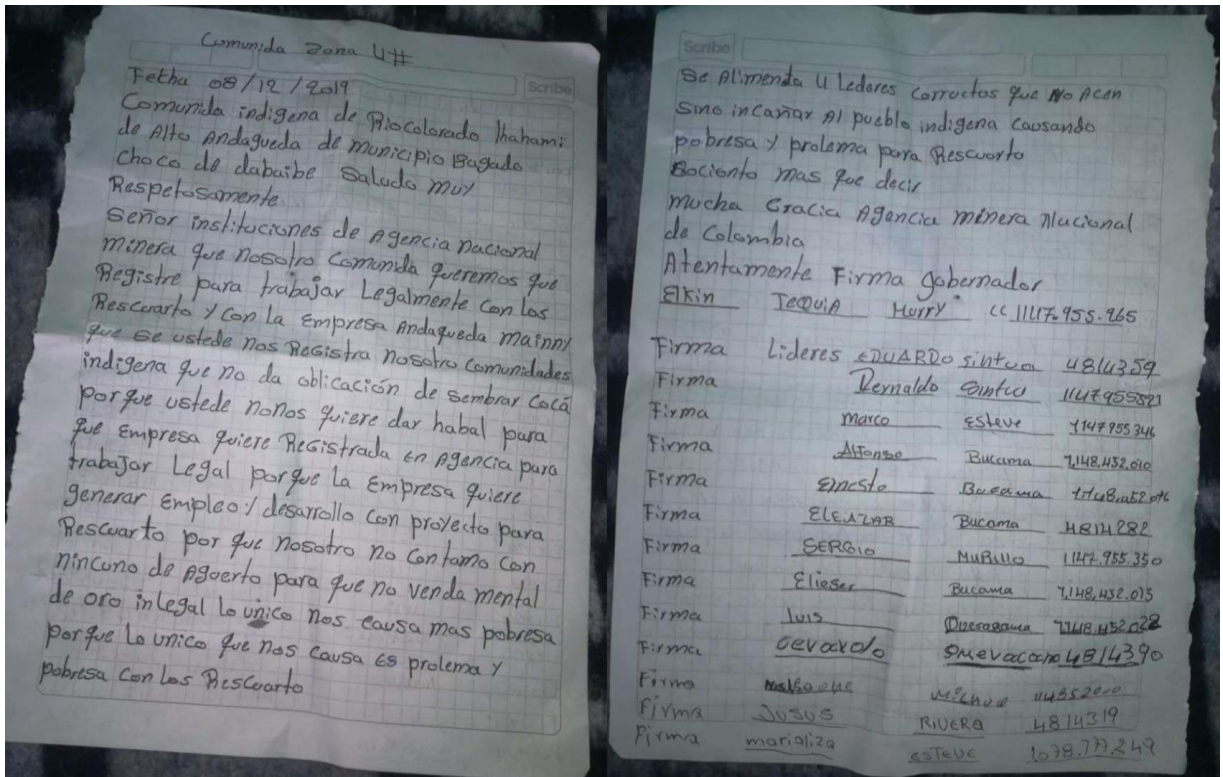 Comunida Zona U#
Scribe
Fetha 08/12/2019
Comunida indigena de Riocolorado
de Alto Andagueda de municipio Bagado
choco de dabaibe Saludo muy
Respetosamente
Señor instituciones de Agencia nacional
minera que nosotro Comunida queremos que
Registre para trabajar Legalmente con los
Rescuarto y con la Empresa Andagueda mainny
que se ustede nos Registra nosotro comunidades
indigena que no da oblicación de sembrar coca
porque ustede nonos quiere dar habal para
que Empresa quiere Registrada en Agencia para
trabajar Legal porque la Empresa quiere
generar Empleo y desarrollo con proyecto para
Rescuarto por que nosotro no Contamo con
nincuno de Aguerto para que no venda mental
de oro inlegal lo unico nos causa mas pobresa
porque lo unico que nos causa es prolema y
pobresa con los Rescuarto
Scribe
Se Alimenda U Ledores corructos que No Acen
Sino incañar Al pueblo indigena causando
pobresa y prolema para Rescuarto
Bocionto mas que decir
mucha Gracia Agencia minera Nacional
de Colombia
Atentamente Firma gobernador
Elkin TEQUIA Murry CC 1147.955.965
Firma Lideres EDUARDO sintua 4814359
Firma Rernaldo Sintua 1147955521
Firma marco Esteve 1147955346
Firma Alfonso Bucama 1,148,452.010
Firma Ernesto Bucama
Firma ELEAZAR Bucama 4814282
Firma SERGIO MuRillo 1147.955.350
Firma Elieser Bucama 1,148,452.015
Firma luis 1148.452.028
Firma Gevarolo 4814390
Firma
Firma Jusus RIVERA 4814319
Firma marializa ESTEVE 1.078.777.249